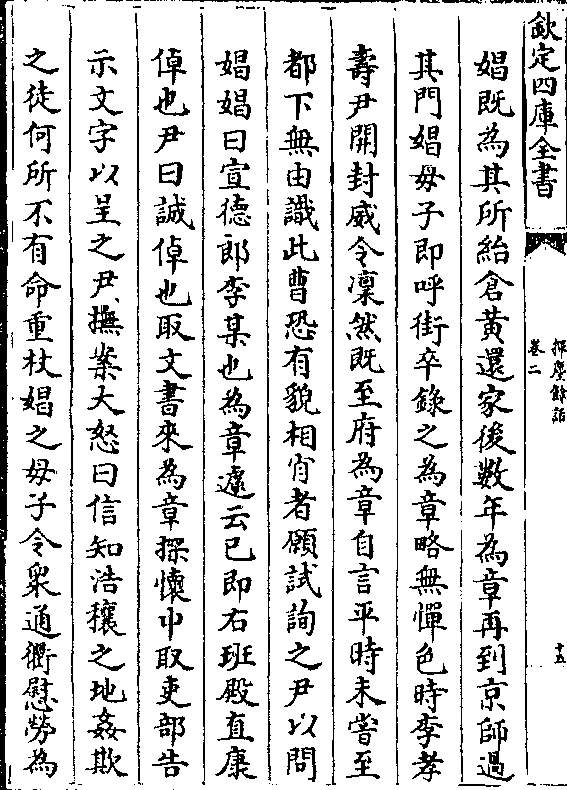 欽定四庫全書
揮麈餘話
卷二
十五
娼既為其所紿倉黄還家後數年為章再到京師過
其門娼母子即呼街卒錄之為章略無憚色時李孝
壽尹開封威令凜然既至府為章自言平時未嘗至
都下無由識此曹恐有貌相肖者願試詢之尹以問
娼娼曰宣德郎李某也為章遽云已即右班殿直康
倬也尹曰誠倬也取文書來為章探懷中取吏部告
示文字以呈之尹撫案大怒曰信知浩穰之地姦欺
之徒何所不有命重杖娼之母子令衆通衢慰勞為